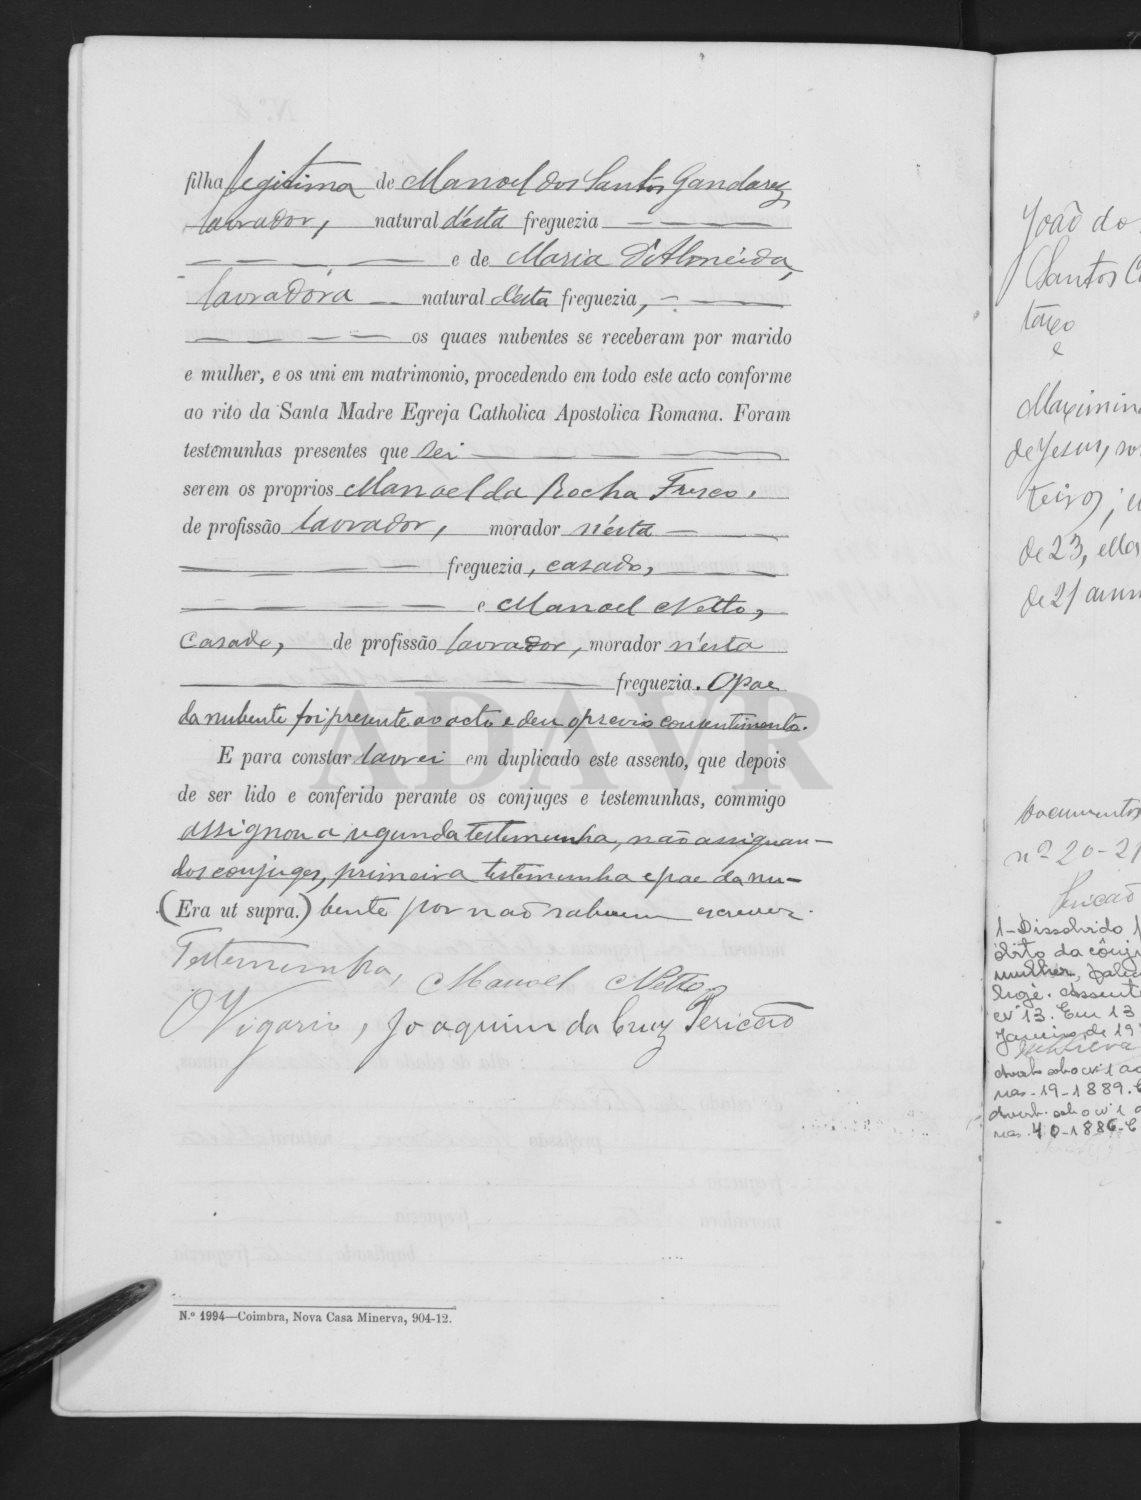 filha legitima de Manoel dos Santos Gandarez
lavrador, natural d'esta freguezia
e de Maria d'Almeida,
lavradora natural d'esta freguezia,
os quaes nubentes se receberam por marido
e mulher, e os uni em matrimonio, procedendo em todo este acto conforme
ao rito da Santa Madre Egreja Catholica Apostolica Romana. Foram
testemunhas presentes que sei
serem os proprios Manoel da Rocha Fresco,
de profissão lavrador, morador n'esta
freguezia, casado,
e Manoel Netto,
casado, de profissão lavrador, morador n'esta
freguezia. O pae
da nubente foi presente ao acto e deu o previo consentimento.
E para constar lavrei em duplicado este assento, que depois
de ser lido e conferido perante os conjuges e testemunhas, commigo
assignou a segunda testemunha, não assignan-
do os conjuges, primeira testemunha e pae da nu-
(Era ut supra.) bente por não saberem escrever.
Testemunha, Manoel Netto
O Vigario, Joaquim da Cruz Pericão
N.º 1994—Coimbra, Nova Casa Minerva, 904-12.
ADAVR
João do
Santos
e
Maximin
de Jesus, sol
teiros; e
de 23, ella
de 21 ann
Documentos
nº 20-21
Pericão
1-Dissolvido
óbito da cônj
mulher, fale
hoje. Assent
nº 13. Em 13
Janeiro de 19
Averb. sob o nº 1 ao
nas.-19-1889.
Averb. sob o nº 1
nas. 40-1886-